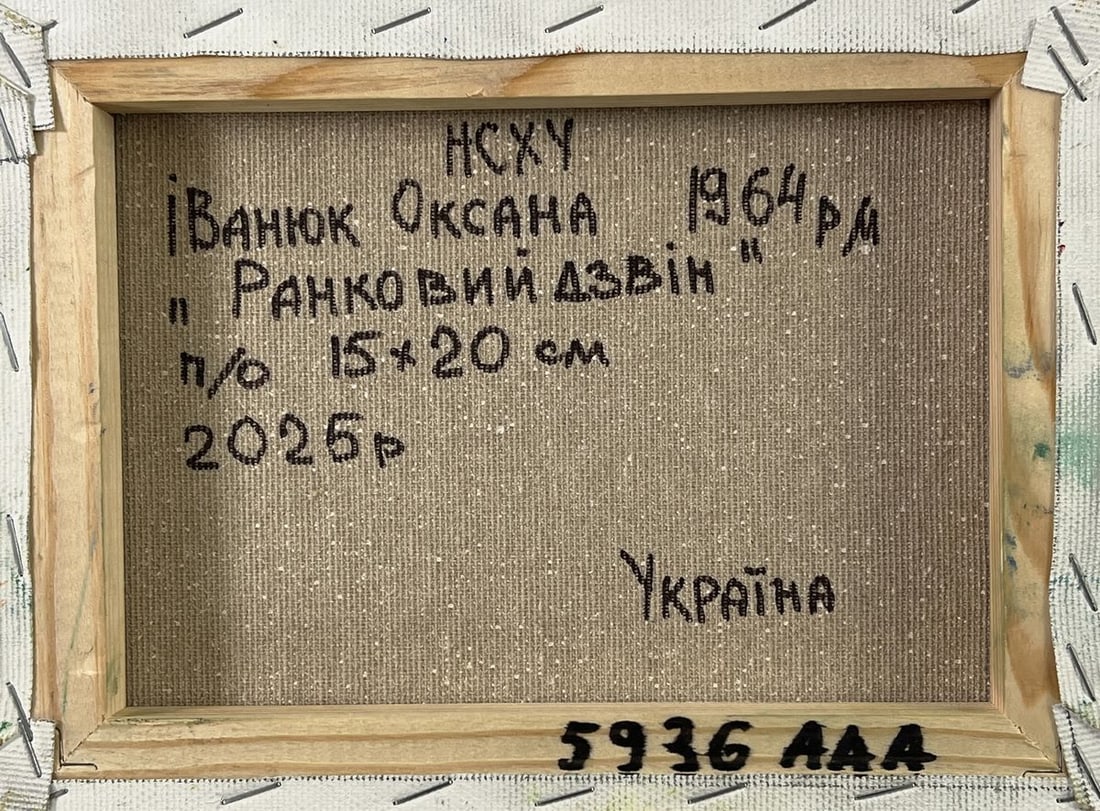 НСХУ
Іванюк Оксана 1964 р м
„Ранковий дзвін"
п/о 15×20 см
2025р
Україна
5936 ААА